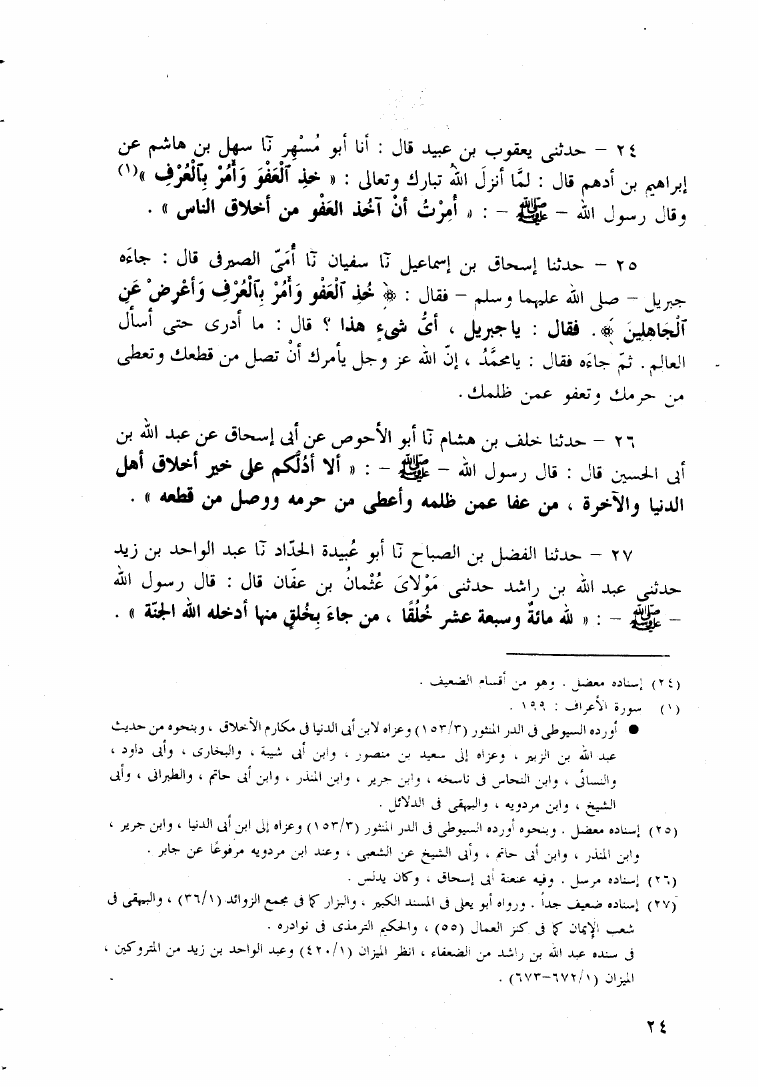 ٢٤ – حدثنى يعقوب بن عبيد قال : أنا أبو مُسْهِر نَا سهل بن هاشم عن
إبراهيم بن أدهم قال : لمَّا أنزلَ اللهُ تبارك وتعالى : « خذِ ٱلْعَفْوَ وَأْمُرْ بِٱلْعُرْفِ »(١)
وقال رسول الله – ﷺ – : « أُمِرْتُ أنْ آخُذ العَفْو من أخلاق الناس » .
٢٥ – حدثنا إسحاق بن إسماعيل نَا سفيان نَا أُمَىّ الصيرفى قال : جاءَه
جبريل – صلى الله عليهما وسلم – فقال : ﴿ خُذِ ٱلْعَفْوَ وَأْمُرْ بِٱلْعُرْفِ وَأَعْرِضْ عَنِ
ٱلْجَاهلِينَ ﴾. فقال : ياجبريل ، أىُّ شىءٍ هذا ؟ قال : ما أدرى حتى أسأل
العالم. ثمّ جاءَه فقال : يامحمَّدُ ، إنّ الله عز وجل يأمرك أنْ تصل من قطعك وتعطى
من حرمك وتعفو عمن ظلمك.
٢٦ – حدثنا خلف بن هشام نَا أبو الأحوص عن أبى إسحاق عن عبد الله بن
أبى الحسين قال : قال رسول الله – ﷺ – : « ألا أدُلُّكم على خير أخلاق أهل
الدنيا والآخرة ، من عفا عمن ظلمه وأعطى من حرمه ووصل من قطعه » .
٢٧ – حدثنا الفضل بن الصباح نَا أبو عُبيدة الحدّاد نَا عبد الواحد بن زيد
حدثنى عبد الله بن راشد حدثنى مَوْلاىَ عُثْمانُ بن عفّان قال : قال رسول الله
– ﷺ – : « لله مائةٌ وسبعة عشر خُلُقًا ، من جاءَ بِخُلقٍ منها أدخله الله الجنّة » .
(٢٤) إسناده معضل . وهو من أقسام الضعيف .
(١) سورة الأعراف : ١٩٩ .
● أورده السيوطى فى الدر المنثور (١٥٣/٣) وعزاه لابن أبى الدنيا فى مكارم الأخلاق ، وبنحوه من حديث
عبد الله بن الزبير ، وعزاه إلى سعيد بن منصور ، وابن أبى شيبة ، والبخارى ، وأبى داود ،
والنسائى ، وابن النحاس فى ناسخه ، وابن جرير ، وابن المنذر ، وابن أبى حاتم ، والطبرانى ، وأبى
الشيخ ، وابن مردويه ، والبيهقى فى الدلائل .
(٢٥) إسناده معضل . وبنحوه أورده السيوطى فى الدر المنثور (١٥٣/٣) وعزاه إلى ابن أبى الدنيا ، وابن جرير ،
وابن المنذر ، وابن أبى حاتم ، وأبى الشيخ عن الشعبى ، وعند ابن مردويه مرفوعًا عن جابر .
(٢٦) إسناده مرسل . وفيه عنعنة أبى إسحاق ، وكان يدلس .
(٢٧) إسناده ضعيف جداً . ورواه أبو يعلى فى المسند الكبير ، والبزار كما فى مجمع الزوائد (٣٦/١) ، والبيهقى فى
شعب الإيمان كما فى كنز العمال (٥٥) ، والحكيم الترمذى فى نوادره .
فى سنده عبد الله بن راشد من الضعفاء ، انظر الميزان (٤٢٠/١) وعبد الواحد بن زيد من المتروكين ،
الميزان (٦٧٢/١–٦٧٣) .
٢٤